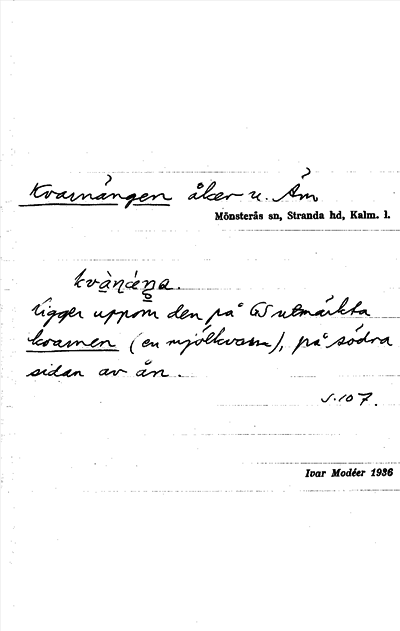 Kvarnängen åker u. Åm
Mönsterås sn, Stranda hd, Kalm. l.
kvànǽŋa.
Ligger uppom den på GS utmärkta
kvarnen (en mjölkvarn), på södra
sidan av ån.
s. 107.
Ivar Modéer 1936